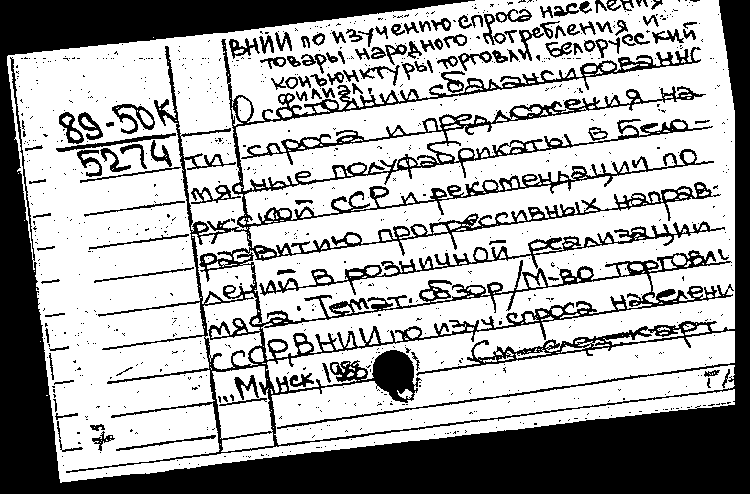 ВНИИ по изучению спроса населения
товары народного потребления и
конъюнктуры торговли. Белорусский
филиал.
89-50К
5274
О состоянии сбалансированнос
ти спроса и предложения на
мясные полуфабрикаты в Бело-
русской ССР и рекомендации по
развитию прогрессивных направ-
лений в розничной реализации
мяса: Темат. обзор / М-во торговли
СССР, ВНИИ по изуч. спроса населени
...Минск, 198
См. след. карт.